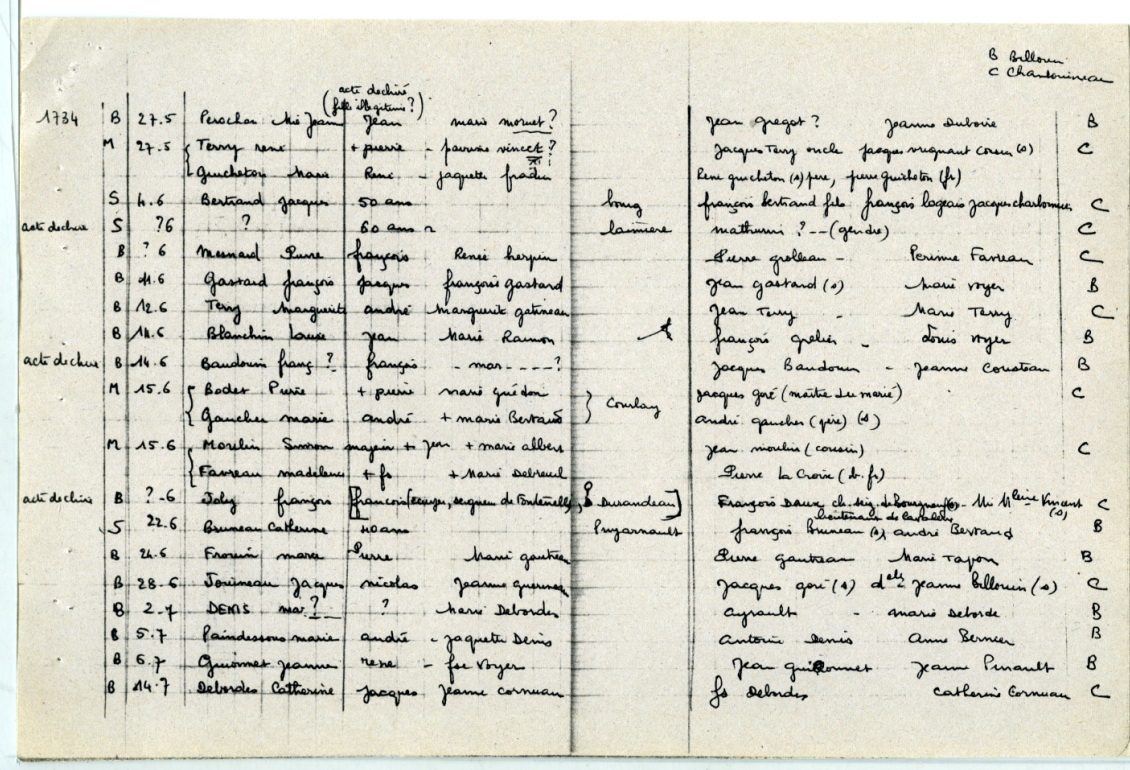 B Billouin
C Charbonneau
acte dechiré
(fille illegitime?)
1734 B 27.5 Perochon Jean marie mornet? Jean gregot? Jeanne Duboie B
M 27.5 Terry rené + pierre - perrine vincent? Jacques Terry oncle jacques cousin (s) C
Guicheton Marie René - jaquette fradin René guicheton (s) pere, pierre guicheton (fr)
S 4.6 Bertrand Jacques 50 ans bourg françois bertrand fils françois lageais jacques charbonneau C
acte dechiré S ?6 ? 60 ans mathurin ? -- (gendre) C
B ? 6 Mesnard Pierre françois Renée herpin Pierre grolleau - Perinne Favreau C
B 11.6 Gastard françois Jacques françoise gastard Jean gastard (s) Marie voyer B
B 12.6 Terry Marguerite andré marguerite gatineau Jean Terry - Marie Terry C
B Blanchin Louise Jean Marie Ramon françois grelier - Louis voyer B
acte dechiré B 14.6 Baudouin franç ? françois - mar----? Jacques Baudouin - Jeanne Cousteau B
M 15.6 Bodet Pierre + pierre marie guédon Coulay jacques goré (maitre du marié) C
Gaucher marie andré + marie Bertaud andré gaucher (père) (s)
M 15.6 Moulin Simon + Jean + marie albert jean moulin (cousin) C
Favreau madeleine + fs + Marie Debreuil Pierre La Croix (b.fr)
acte dechiré B ?-6 Joly françois [francois (ecuyer, seigneur de Fontenelle), Durandeau] François Vincent (s) C
lieutenant de cavalerie
S 22.6 Bruneau Catherine 40 ans Puyarnault françois Bruneau (s) andré Bertaud B
B 24.6 Frouin marie Pierre Marie gauteau Pierre gauteau Marie Tapon B
B 28.6 Jouineau Jacques nicolas Jeanne Jacques goré (s) delle Jeanne billouin (s) C
B 2.7 DENIS mar ? ? Marie Debordes ayrault - marie deborde B
B 5.7 Paindessous marie andré - jaquette Denis antoine denis Anne Bernier B
B 6.7 Guionnet Jeanne rené - fse voyer Jean guionnet Jeanne Pinault B
B 14.7 Debordes Catherine Jacques Jeanne cornuau fs Debordes Catherine Cornuau C